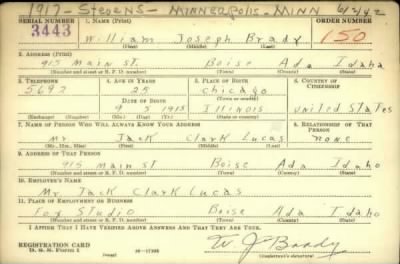 1917 - Stevens - Minneapolis - Minn 6/2/42
SERIAL NUMBER 1. NAME (Print) ORDER NUMBER
3443 William Joseph Brady 150
(First) (Middle) (Last)
2. ADDRESS (Print)
915 Main St. Boise Ada Idaho
(Number and street or R. F. D. number) (Town) (County) (State)
3. TELEPHONE 4. AGE IN YEARS 5. PLACE OF BIRTH 6. COUNTRY OF CITIZENSHIP
5692 25 Chicago
(Town or county)
DATE OF BIRTH
9 5 1915 Illinois United States
(Exchange) (Number) (Mo.) (Day) (Yr.) (State or country)
7. NAME OF PERSON WHO WILL ALWAYS KNOW YOUR ADDRESS 8. RELATIONSHIP OF THAT PERSON
Mr Jack Clark Lucas none
(Mr., Mrs., Miss) (First) (Middle) (Last)
9. ADDRESS OF THAT PERSON
915 Main St Boise Ada Idaho
(Number and street or R. F. D. number) (Town) (County) (State)
10. EMPLOYER'S NAME
Mr Jack Clark Lucas
11. PLACE OF EMPLOYMENT OR BUSINESS
Fox Studio Boise Ada Idaho
(Number and street or R. F. D. number) (Town) (County) (State)
I AFFIRM THAT I HAVE VERIFIED ABOVE ANSWERS AND THAT THEY ARE TRUE.
REGISTRATION CARD
D. S. S. FORM 1 W J Brady
(over) (Registrant's signature)